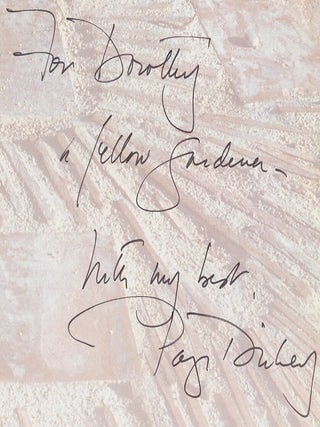 For Dorothy
a fellow gardener –
With my best,
Page Dickey